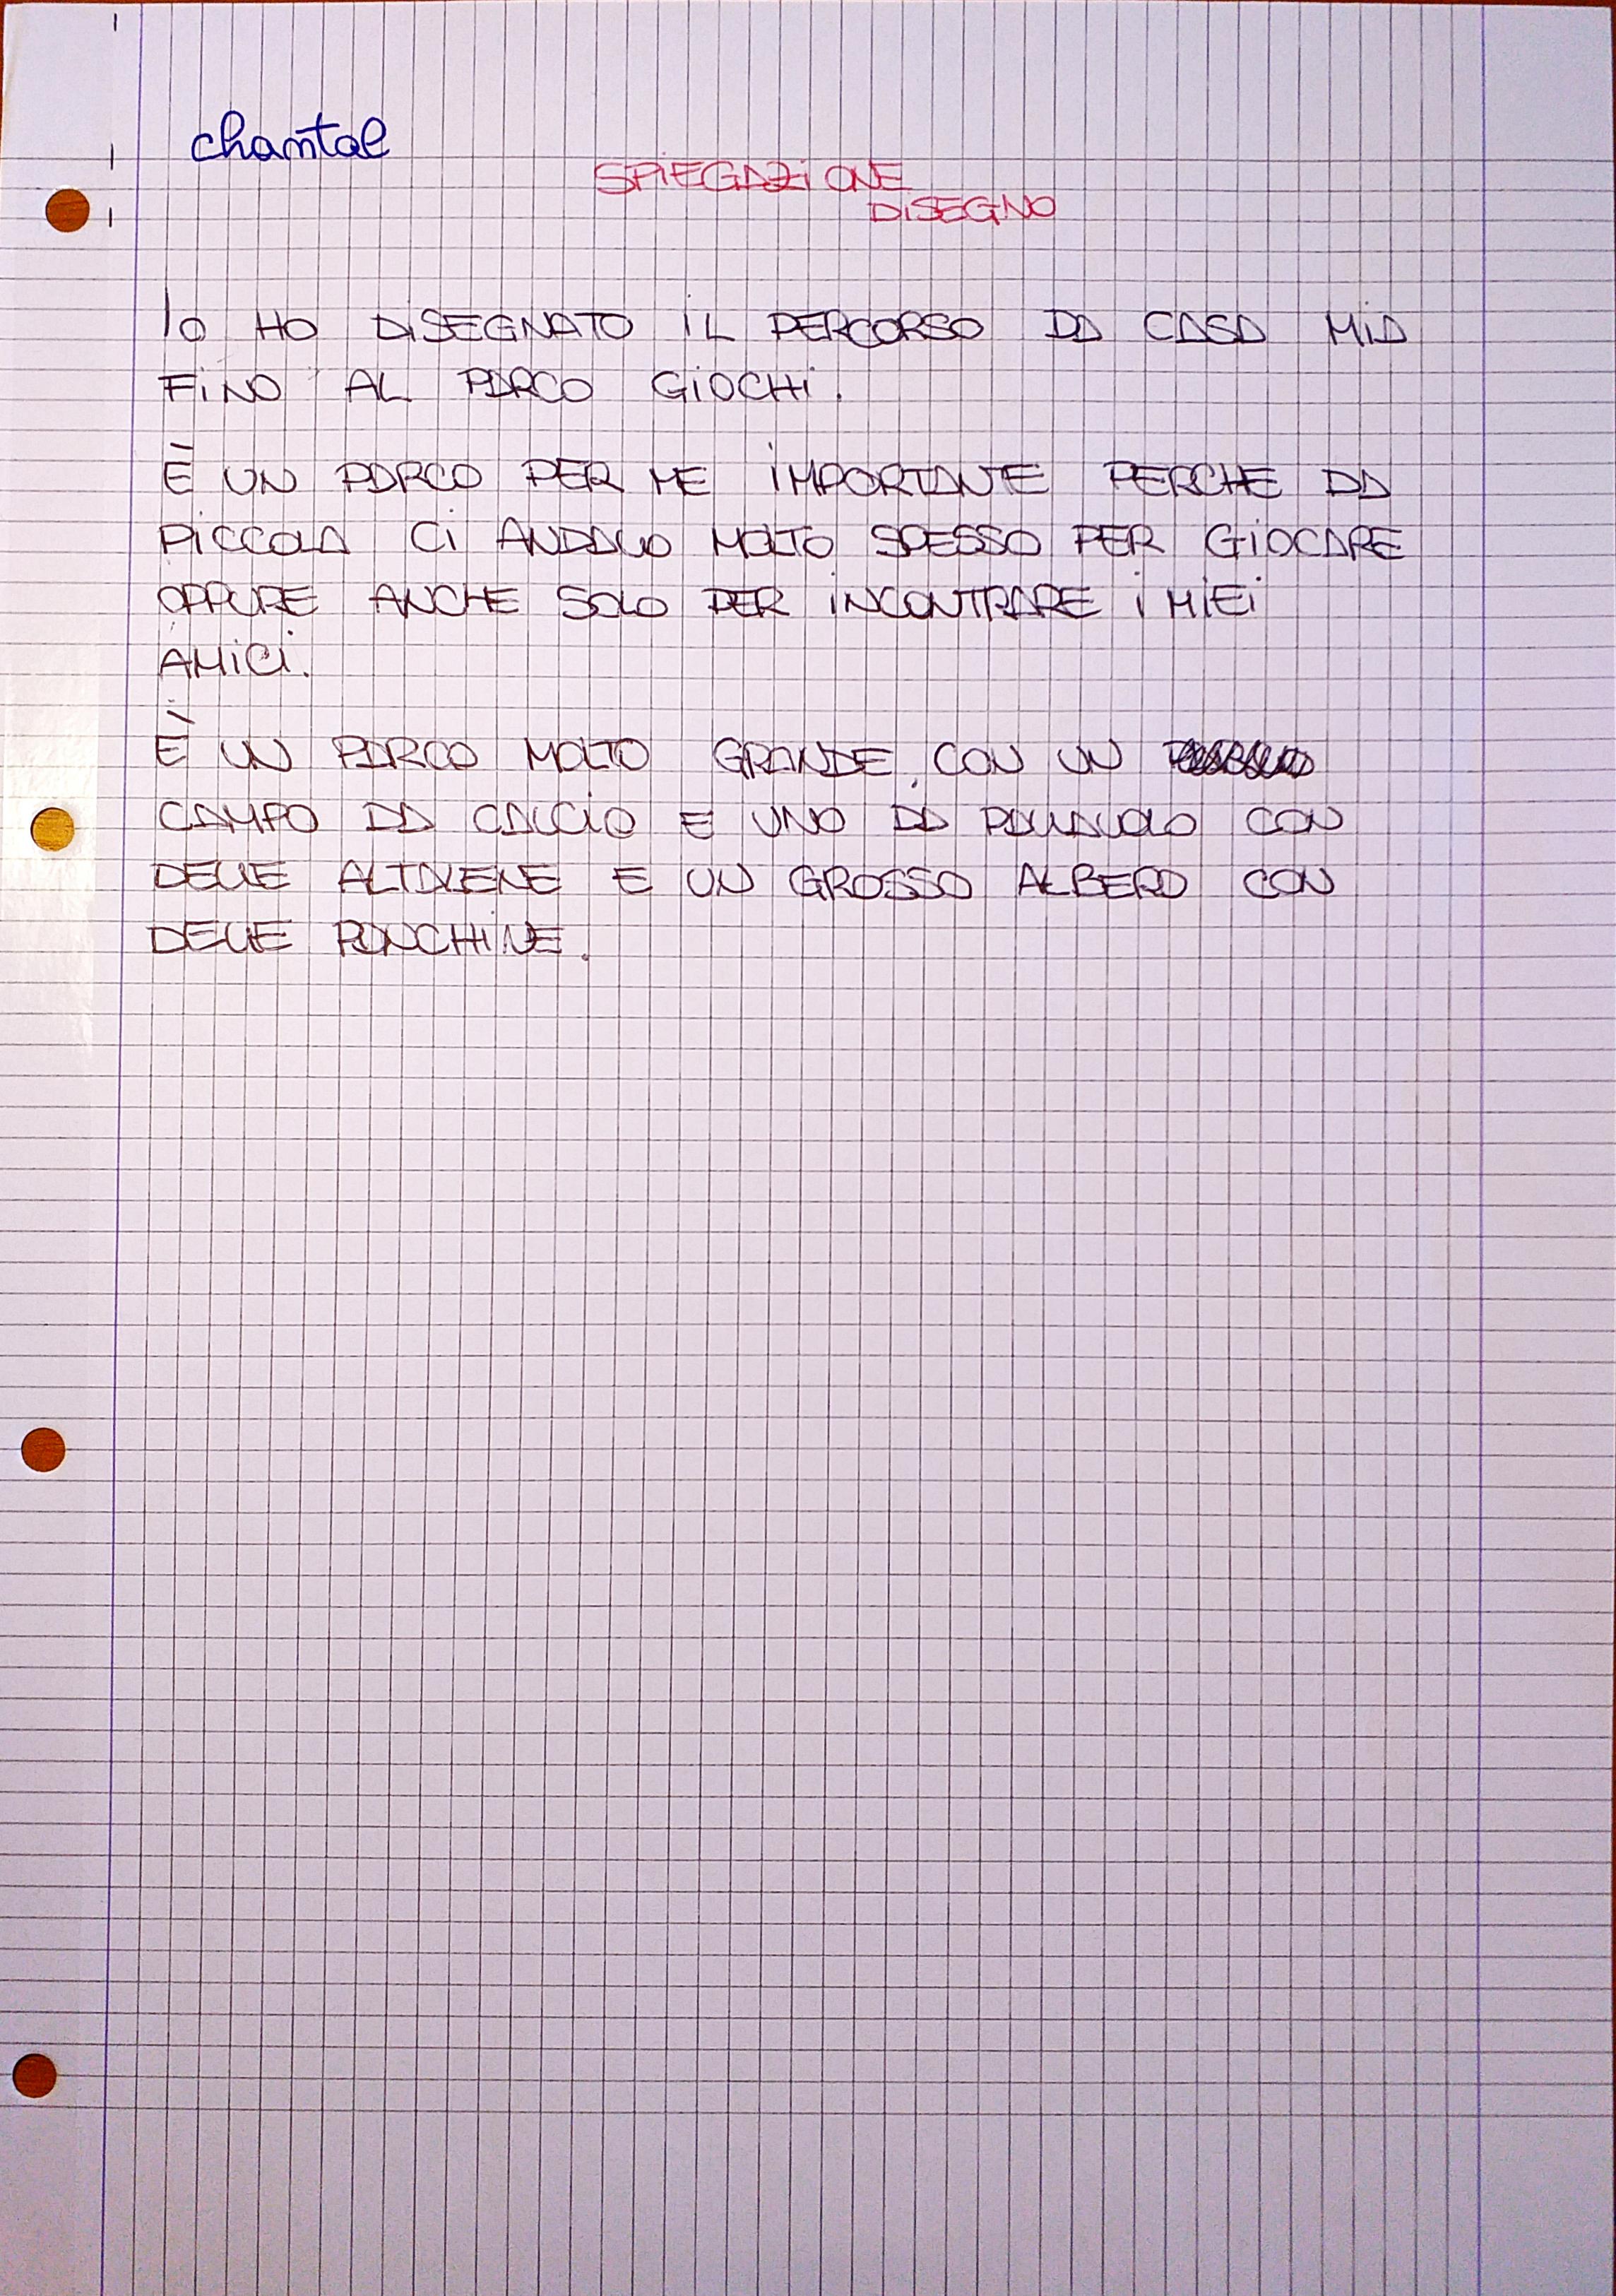 chantal
SPIEGAZIONE
DISEGNO
IO HO DISEGNATO IL PERCORSO DA CASA MIA
FINO AL PARCO GIOCHI.
È UN PARCO PER ME IMPORTANTE PERCHE DA
PICCOLA CI ANDAVO MOLTO SPESSO PER GIOCARE
OPPURE ANCHE SOLO PER INCONTRARE I MIEI
AMICI.
È UN PARCO MOLTO GRANDE, CON UN
CAMPO DA CALCIO E UNO DA PALLAVOLO CON
DELLE ALTALENE E UN GROSSO ALBERO CON
DELLE PANCHINE.